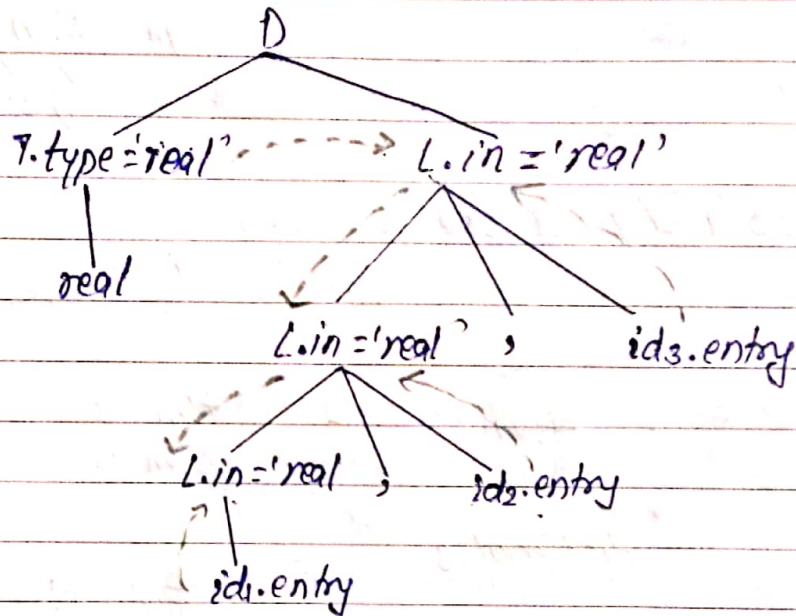 D
T.type='real' L.in='real'
real
L.in='real' , id3.entry
L.in='real , id2.entry
id1.entry